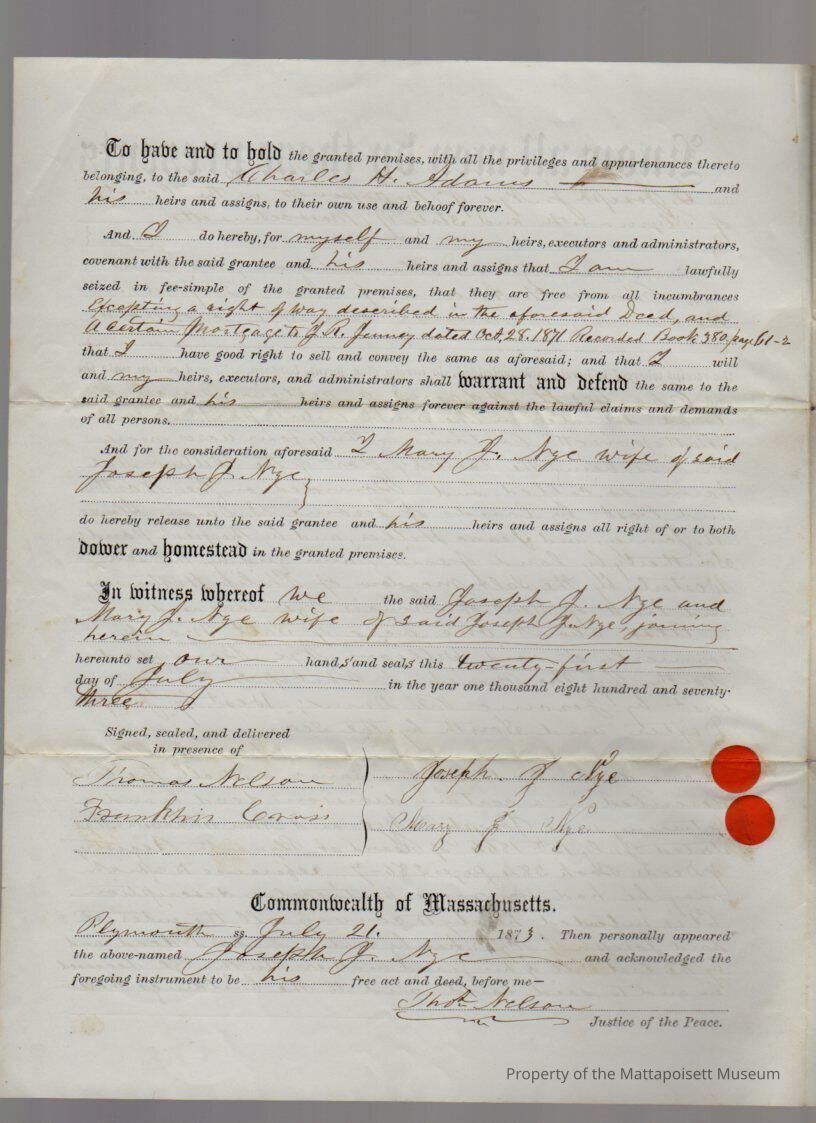 To have and to hold the granted premises, with all the privileges and appurtenances thereto
belonging, to the said Charles H. Adams and
his heirs and assigns, to their own use and behoof forever.
And I do hereby, for myself and my heirs, executors and administrators,
covenant with the said grantee and his heirs and assigns that I am lawfully
seized in fee-simple of the granted premises, that they are free from all incumbrances
Excepting a right of way described in the aforesaid Deed, and
A Certain Mortgage to J. R. Jenney dated Oct 28. 1871 Recorded Book 380, page 61-2
that I have good right to sell and convey the same as aforesaid; and that I will
and my heirs, executors, and administrators shall warrant and defend the same to the
said grantee and his heirs and assigns forever against the lawful claims and demands
of all persons.
And for the consideration aforesaid I Mary J. Nye wife of said
Joseph J Nye
do hereby release unto the said grantee and his heirs and assigns all right of or to both
dower and homestead in the granted premises.
In witness whereof we the said Joseph J. Nye and
Mary J. Nye wife of said Joseph J. Nye, joining
herein
hereunto set our hands and seals this twenty-first
day of July in the year one thousand eight hundred and seventy-
three.
Signed, sealed, and delivered
in presence of
Thomas Nelson
Franklin Cross
Joseph. J Nye
Mary J Nye.
Commonwealth of Massachusetts.
Plymouth ss. July 21. 1873. Then personally appeared
the above-named Joseph J. Nye and acknowledged the
foregoing instrument to be his free act and deed, before me—
Thos. Nelson
Justice of the Peace.
Property of the Mattapoisett Museum